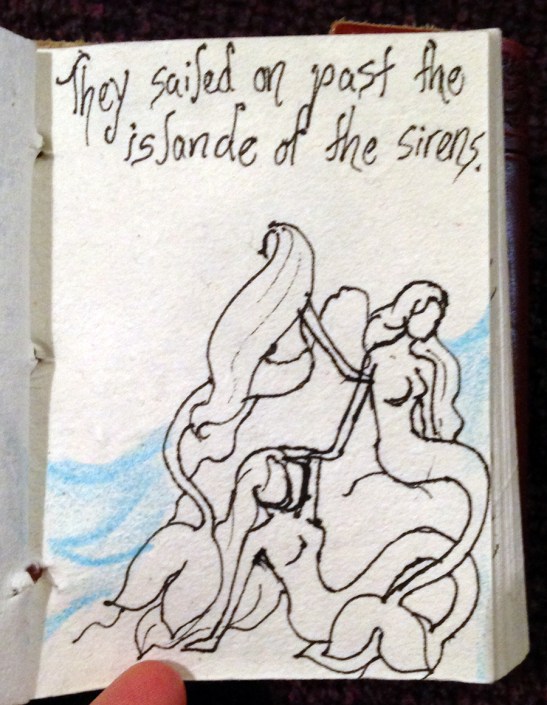 They sailed on past the
islande of the sirens.